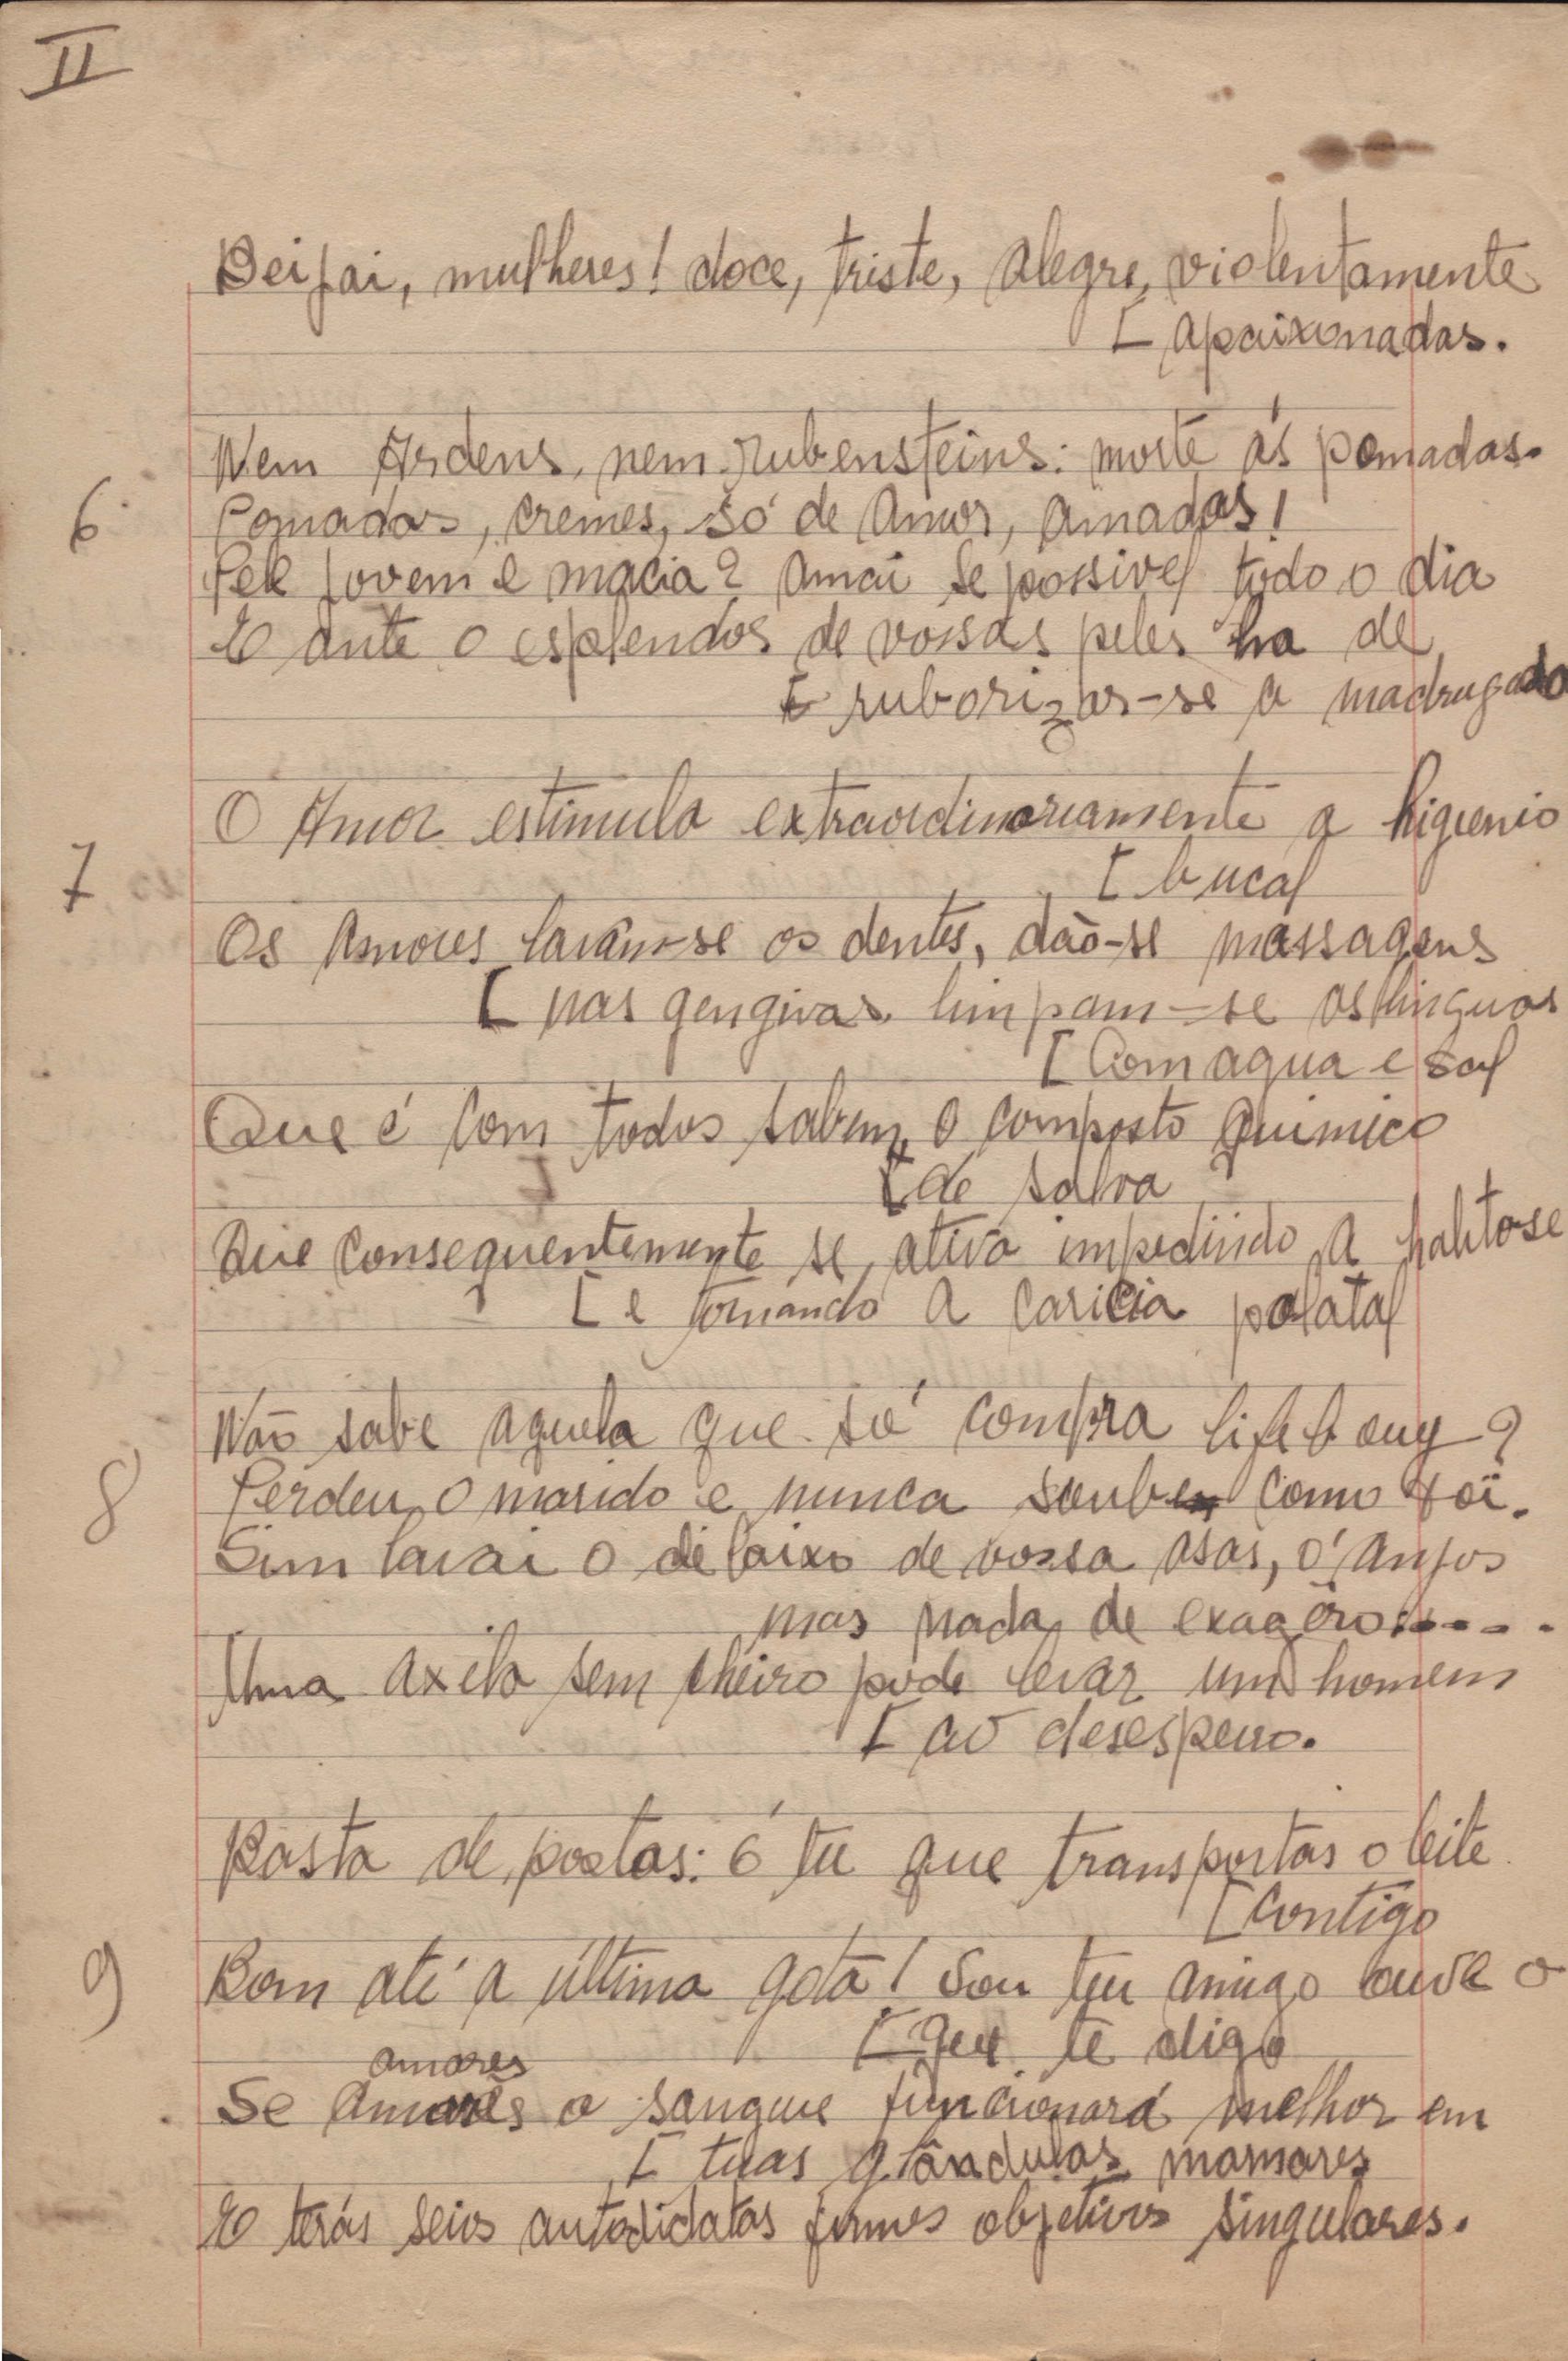 II
Beijai, mulheres! doce, triste, alegre, violentamente
[ apaixonadas.
Nem Ardens, nem rubensteins: morte ás pomadas.
6
Pomadas, cremes, só de Amor, amadas!
Pele jovem e macia? Amai se possivel todo o dia
E ante o esplendor de vossas peles ha de
[ ruborizar-se a madrugada
O Amor estimula extraordinariamente a higienio
[ bucal
7
Os Amores lavam-se os dentes, dão-se massagens
[ nas gengivas limpam-se as linguas
[ Com agua e sal
Que é com todos sabem, o composto quimico
[ de salva
Que consequentemente se ativa impedindo a halitose
[ e tornando a caricia palatal
Não sabe aquela que só compra lifebouy?
8
Perdeu o marido e nunca soube como foi.
Sim lavai o debaixo de vossa asas, o' Anjos
mas nada de exagêro....
Uma axila sem cheiro pode levar um homem
[ ao desespero.
Basta de poetas: é tu que transportas o leite
[ contigo
9
Bom até a última gota! Sou teu amigo ouve o
[ que te digo
amores
Se amares o sangue funcionará melhor em
[ tuas glândulas mamares
E terás seios autodidatas firmes objetivos singulares.